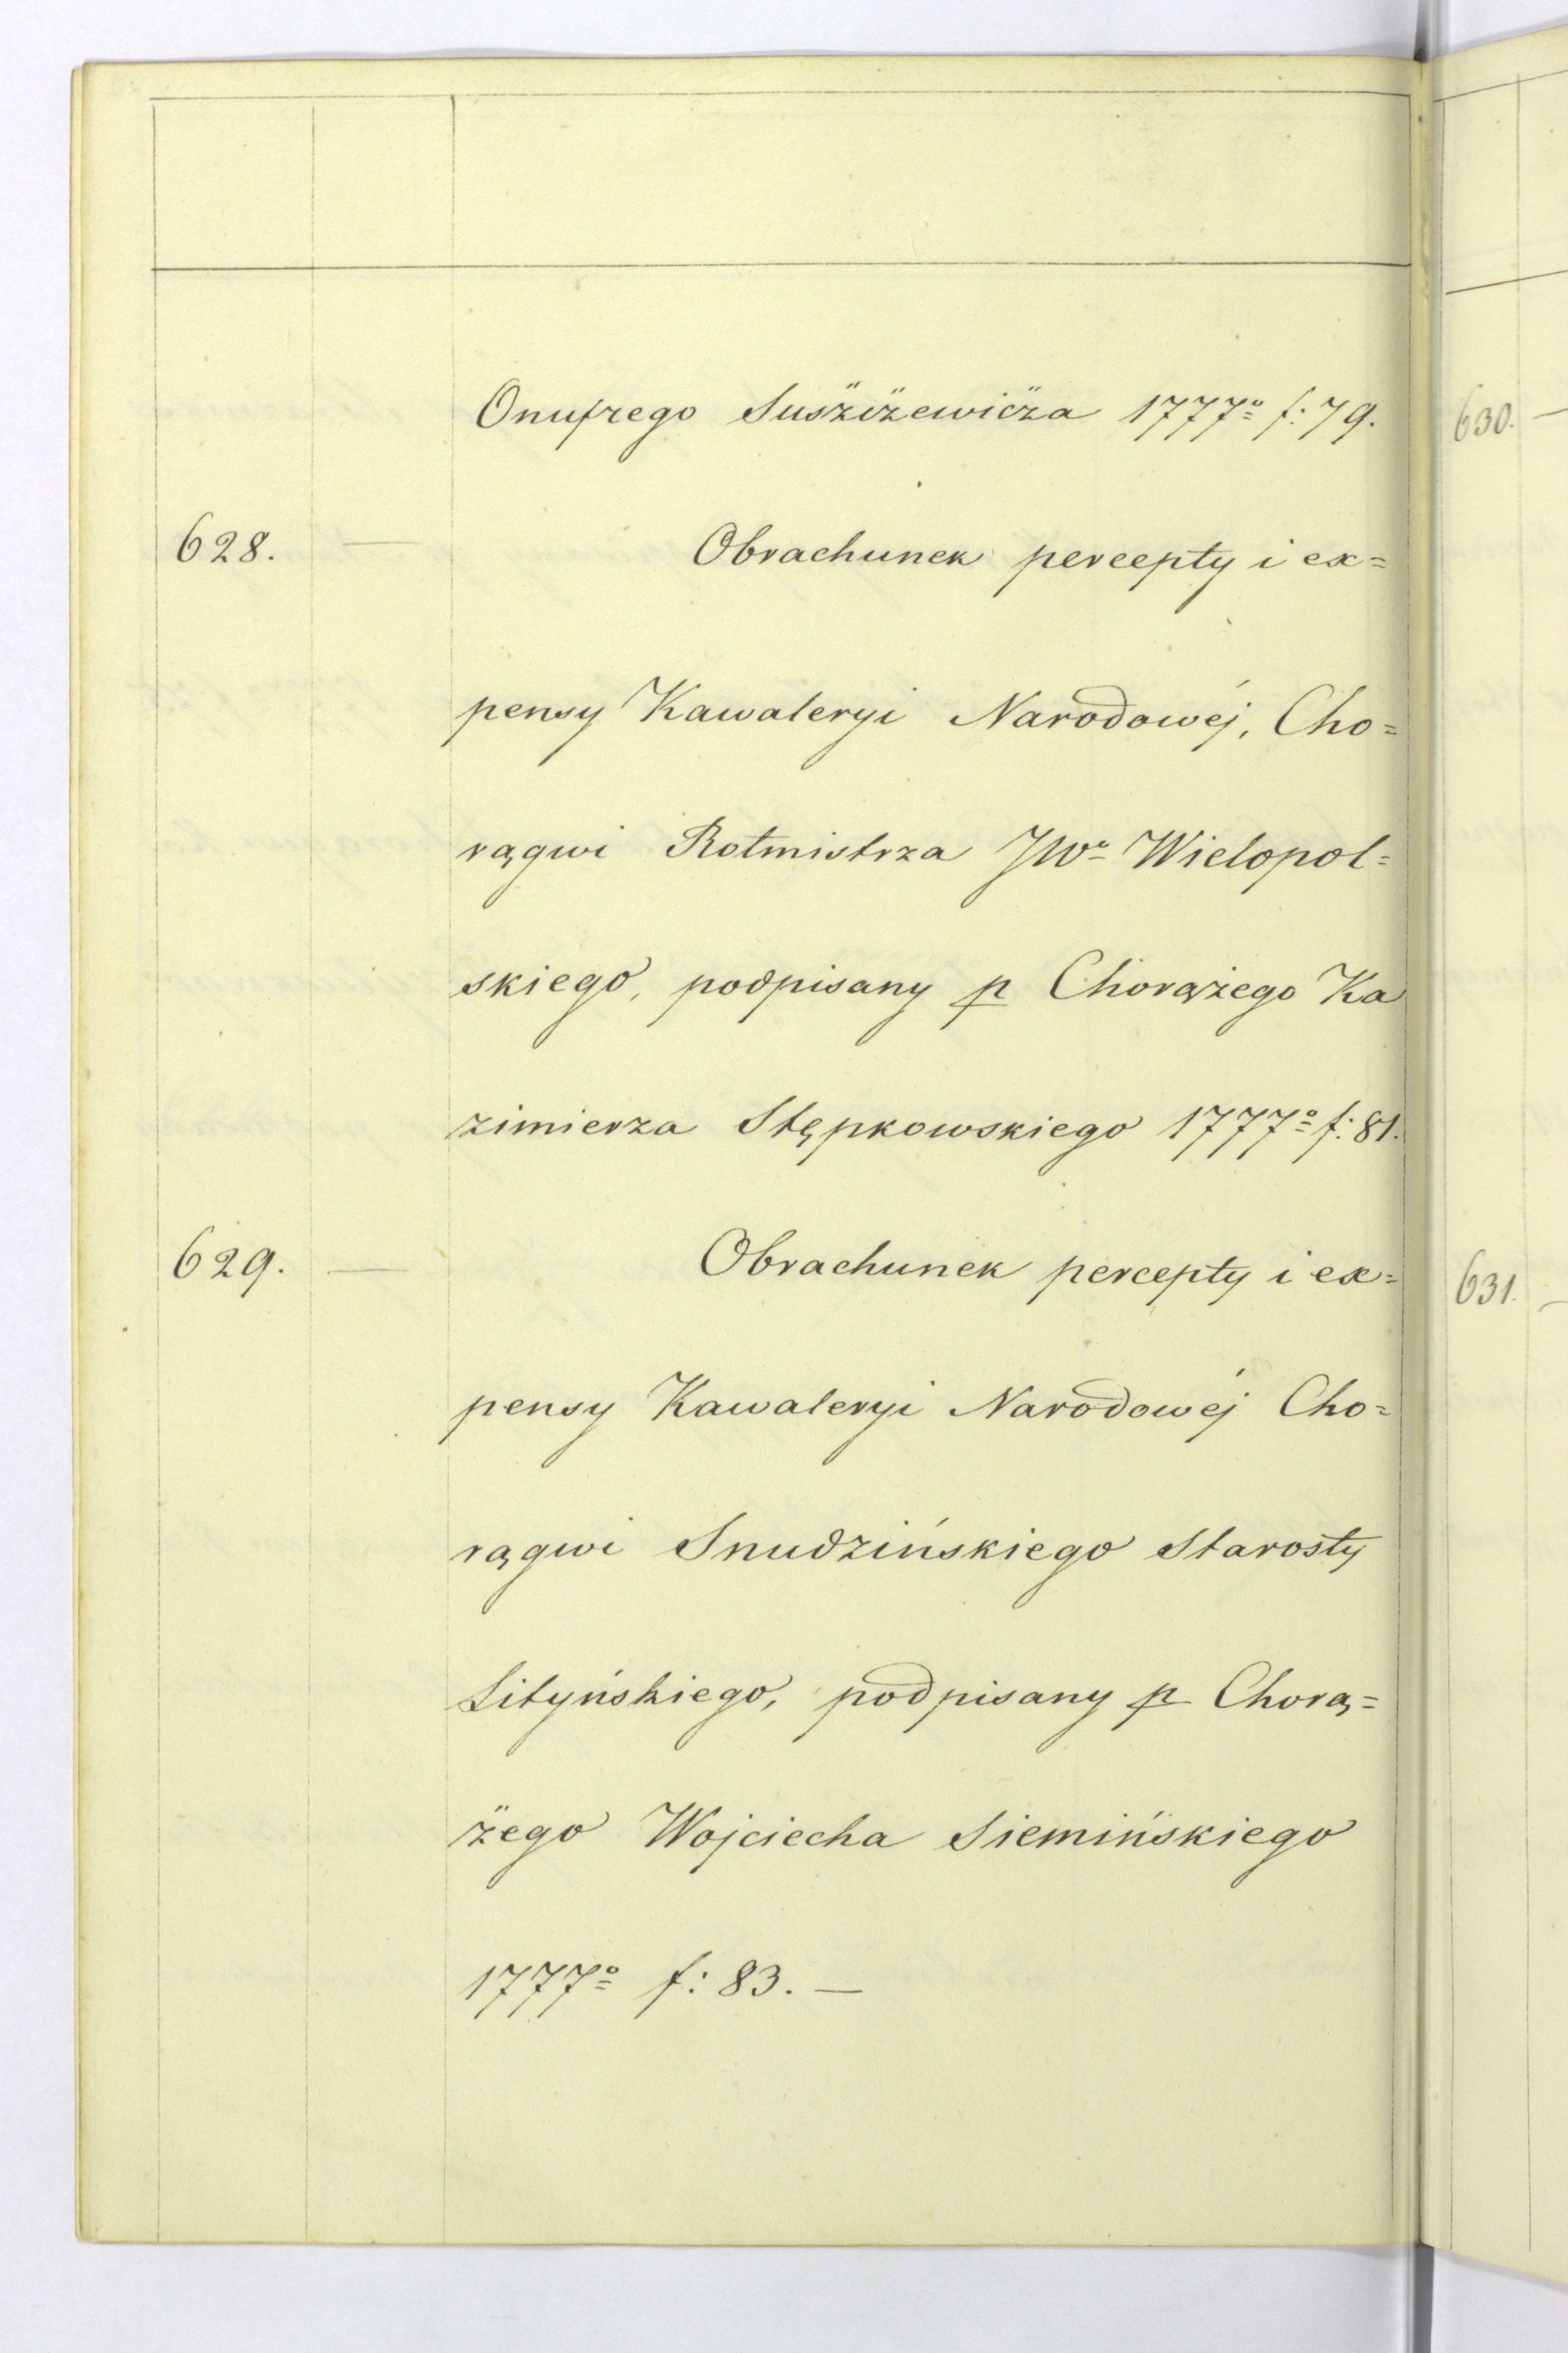 Onufrego Suszczewicza 1777º f: 79.
628. — Obrachunek percepty i ex=
pensy Kawaleryi Narodowéj, Cho=
rągwi Rotmistrza JWº Wielopol=
skiego, podpisany p Chorążego Ka
zimierza Stępkowskiego 1777º f: 81.
629. — Obrachunek percepty i ex=
pensy Kawaleryi Narodowéj Cho=
rągwi Snudzińskiego Starosty
Lityńskiego, podpisany p Chorą=
żego Wojciecha Siemińskiego
1777º f: 83. —
630. —
631. —